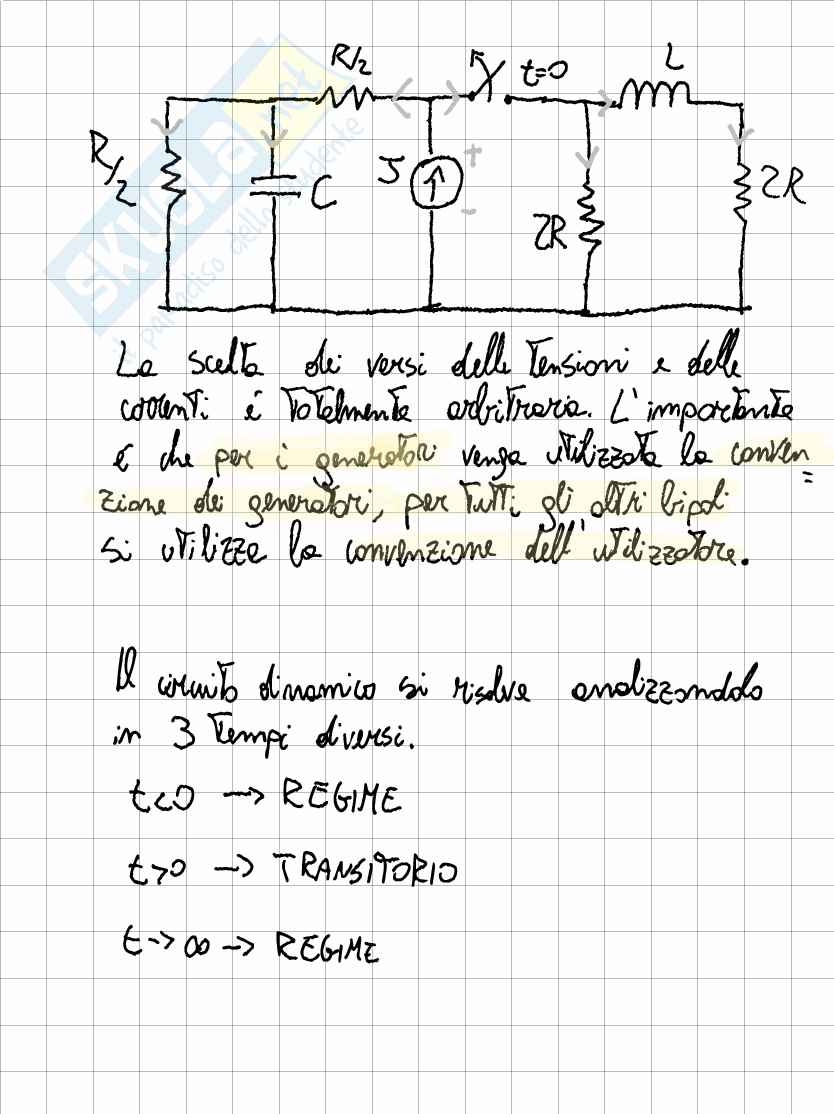 R/2 t=0 L
R/2 C J 2R 2R
+
-
SKUOLA.net
il paradiso dello studente
La scelta dei versi delle tensioni e delle
correnti é totalmente arbitraria. L'importante
é che per i generatori venga utilizzata la conven=
zione dei generatori, per tutti gli altri bipoli
si utilizza la convenzione dell'utilizzatore.
Il circuito dinamico si risolve analizzandolo
in 3 tempi diversi.
t<0 -> REGIME
t>0 -> TRANSITORIO
t->∞ -> REGIME